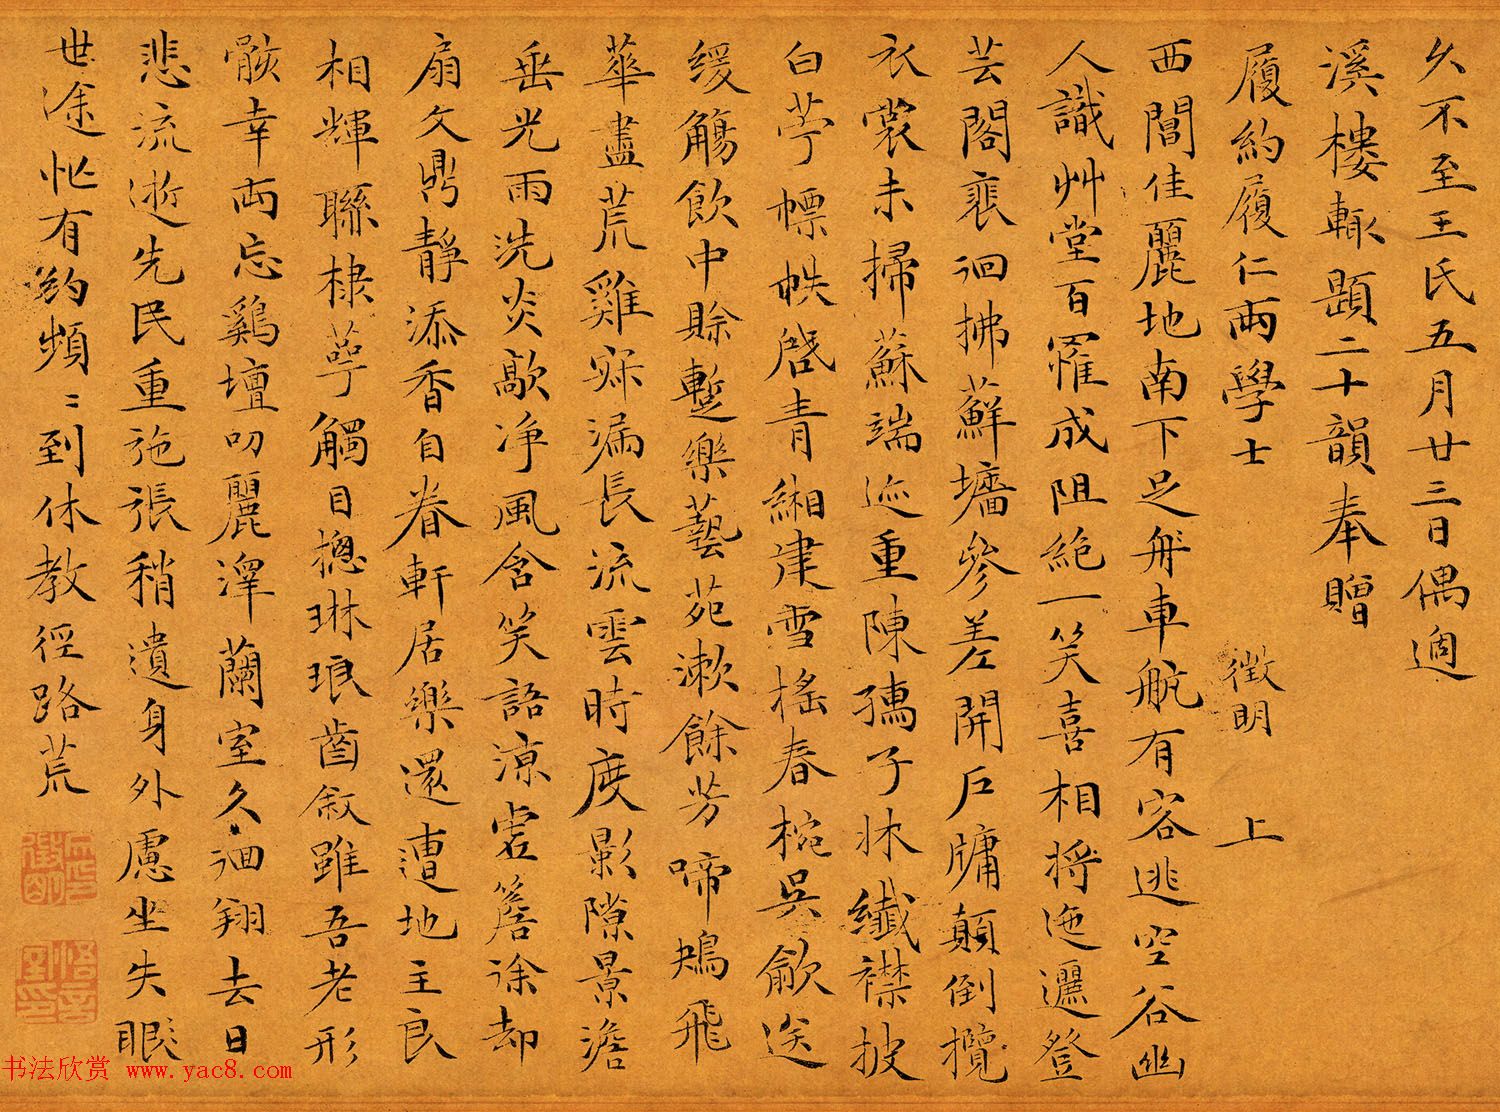 久不至王氏五月廿三日偶過
溪樓輙題二十韻奉贈
履約履仁兩學士
徵明 上
西閶佳麗地南下足舟車航有容逃空谷幽
人識艸堂百罹成阻絶一笑喜相將迤邐登
芸閣裵徊拂蘚墻參差開戶牖顛倒攬
衣裳未掃蘇端迹重陳孺子牀纖襟披
白苧幖帙啓青緗建雪搖春椀吳歈送
緩觴飲中賒蹔樂藝苑漱餘芳啼鴂飛
華盡荒雞寐漏長流雲時度影隙景澹
垂光雨洗炎歊净風含笑語凉虚簷徐却
扇文鼎靜添香自眷軒居樂還遭地主良
相輝聯棣萼觸目揔琳琅齒敘雖吾老形
骸幸兩忘鷄壇叨麗澤蘭室久徊翔去日
悲流逝先民重弛張稍遺身外慮坐失眼
世途忙有約頻〻到休教徑路荒
书法欣赏 www.yac8.com